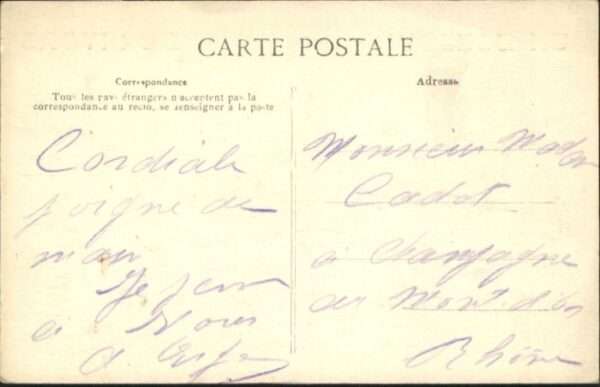 CARTE POSTALE
Correspondance
Tous les pays étrangers n'acceptent pas la
correspondance au recto, se renseigner à la poste
Cordiale
poigné de
main
a
Adresse
Monsieur Madam
Cadot
a Champagne
au Mont d'or
Rhône